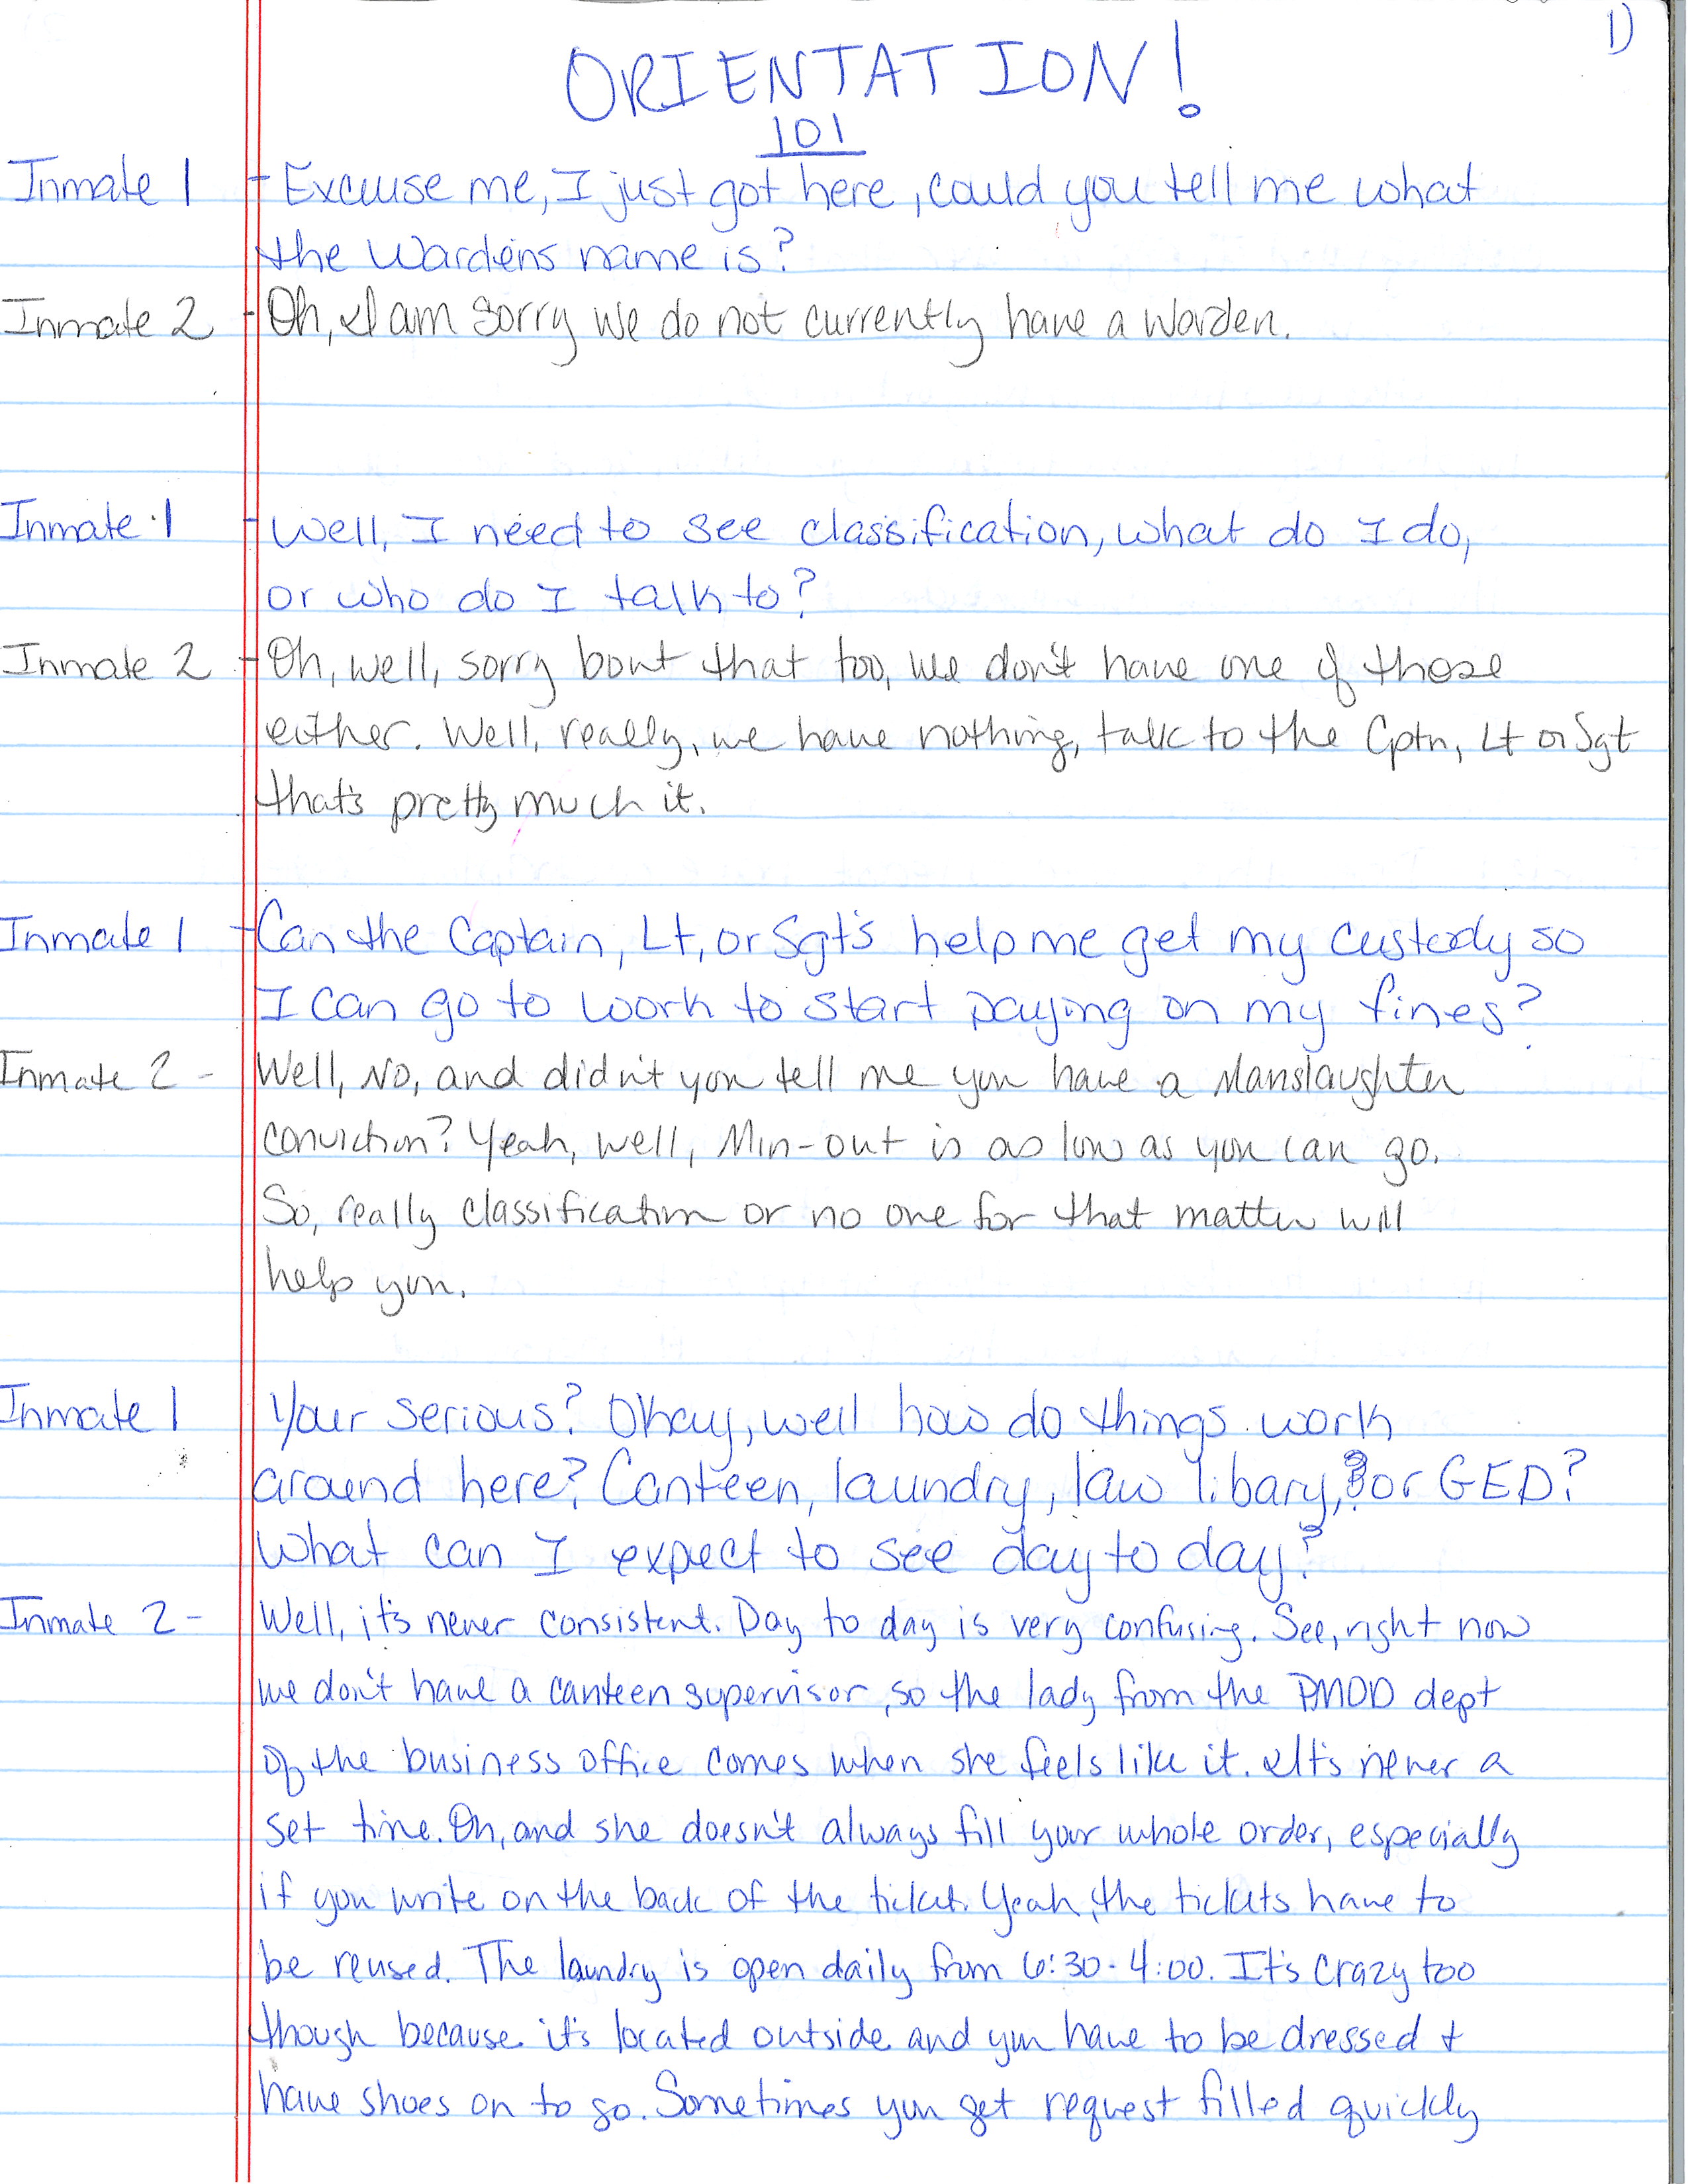 1)
ORIENTATION!
101
Inmate 1 - Excuse me, I just got here, could you tell me what
the Wardens name is?
Inmate 2 - Oh, I am sorry we do not currently have a Warden.
Inmate 1 - Well, I need to see classification, what do I do,
or who do I talk to?
Inmate 2 - Oh, well, sorry bout that too, we don't have one of those
either. Well, really, we have nothing, talk to the Cptn, Lt or Sgt
that's pretty much it.
Inmate 1 - Can the Captain, Lt, or Sgt's help me get my custody so
I can go to work to start paying on my fines?
Inmate 2 - Well, No, and didn't you tell me you have a Manslaughter
conviction? Yeah, well, Min-out is as low as you can go.
So, really classification or no one for that matter will
help you.
Inmate 1 Your serious? Okay, well how do things work
around here? Canteen, laundry, law libary, or GED?
What can I expect to see day to day?
Inmate 2 - Well, it's never consistent. Day to day is very confusing. See, right now
we don't have a canteen supervisor, so the lady from the PMOD dept
of the business office comes when she feels like it. It's never a
set time. Oh, and she doesn't always fill your whole order, especially
if you write on the back of the ticket. Yeah, the tickets have to
be reused. The laundry is open daily from 6:30-4:00. It's crazy too
though because it's located outside and you have to be dressed +
have shoes on to go. Sometimes you get request filled quickly